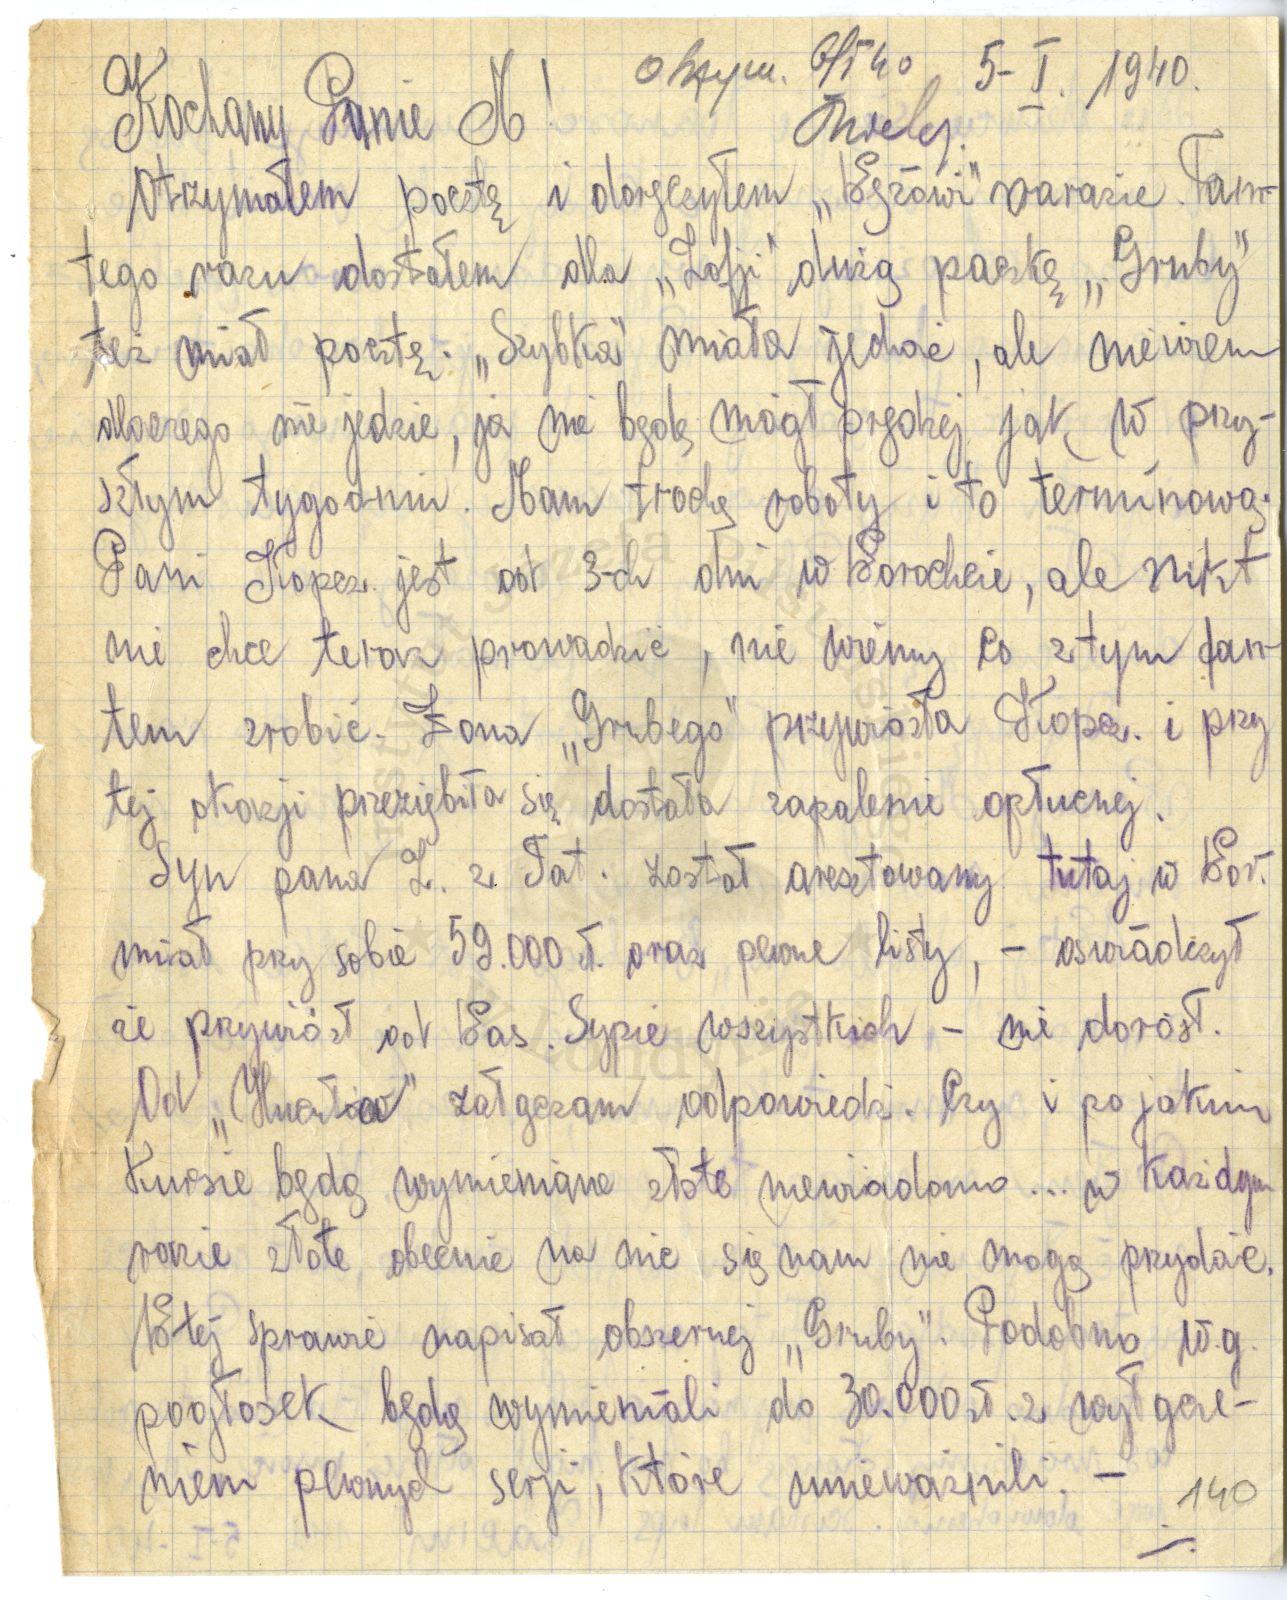 otrzym. 6/I 40 5-I. 1940.
Kochany Panie M!
Otrzymałem pocztę i doręczyłem „Wężowi" narazie. Tam-
tego razu dostałem dla „Zofji" dużą paczkę „Gruby"
też miał pocztę. „Szybka" miała jechać, ale niewiem
dlaczego nie jedzie, ja nie będę mógł prędzej jak w przy-
szłym tygodniu. Mam trochę roboty i to terminową.
Pani Kopcz. jest od 3-ch dni w Worochcie, ale nikt
nie chce teraz prowadzić, nie wiemy co z tym fan-
tem zrobić. Żona „Grubego" przywiozła Kopcz. i przy
tej okazji przeziębiła się dostała zapalenie opłucnej.
Syn pana Z. z Tat. został aresztowany tutaj w Wor.
miał przy sobie 59.000 zł. oraz pewne listy, – oswiadczył
że przywiózł od Was. Sypie wszystkich – nie dorósł.
Od załączam odpowiedź. Czy i po jakim
kursie będą wymieniane złote niewiadomo... w każdym
razie złote obecnie na nic się nam nie mogą przydać.
W tej sprawie napisał obszerniej „Gruby". Podobno w.g.
pogłosek będą wymieniali do 30.000 zł. z wyłącze-
niem pewnych serji, które unieważnili. –
140